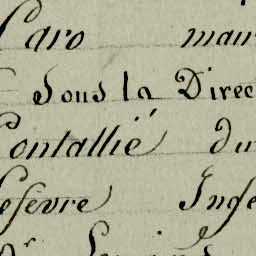 Caro mair
Sous la Direc
Pontallié du
Lefevre Inge